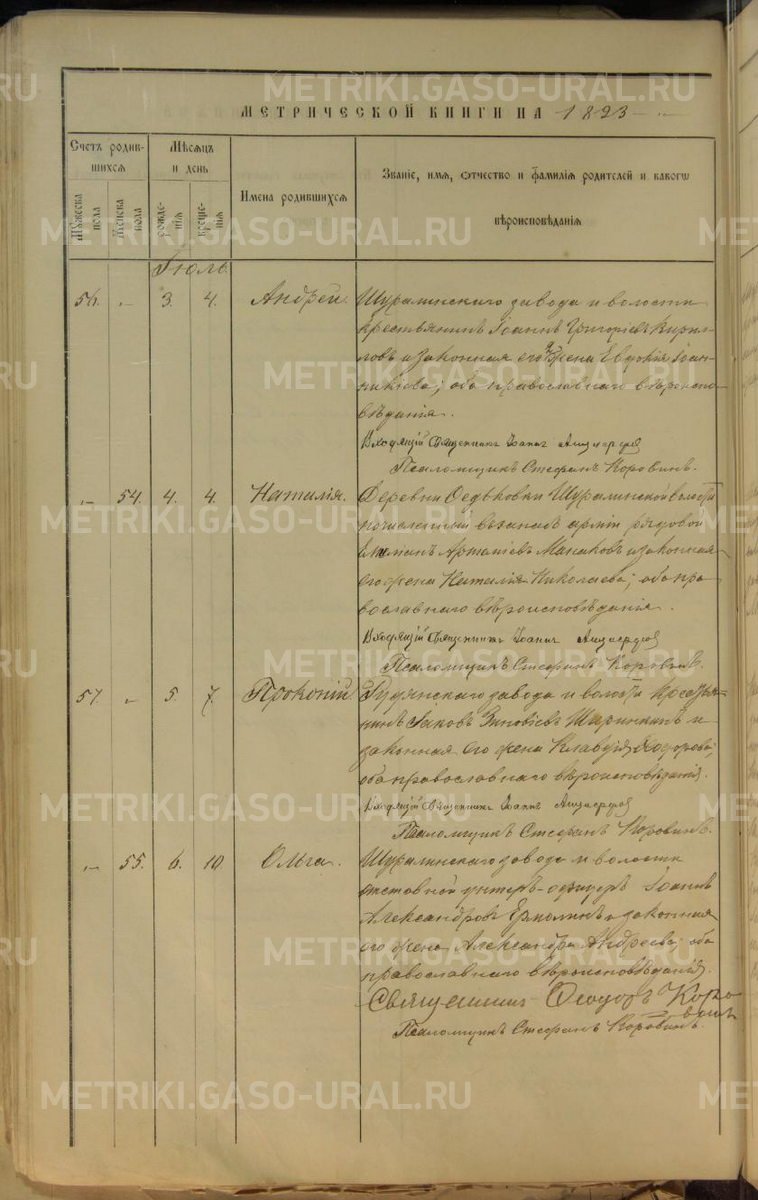 МЕТРИЧЕСКОЙ КНИГИ НА 1893
Счетъ родившихся
Мѣсяцъ и день
Имена родившихся
Званіе, имя, отчество и фамилія родителей и какогѡ вѣроисповѣданія
Мужеска пола
Женска пола
рожденія
крещенія
Іюль.
56. „ 3. 4. Андрей.
Шуралинскаго завода и волости
крестьянинъ Іоаннъ Григоріевъ Кирил-
ловъ и законная его жена Евдокія Іоан-
никіева; оба православнаго вѣроиспо-
вѣданія.
Входящій Священникъ Іоаннъ
Псаломщикъ Стефанъ Коровинъ.
„ 54. 4. 4. Наталія.
Деревни Федьковки Шуралинской волости
рядовой
Артеміевъ и законная
его жена Наталія Николаева; оба пра-
вославнаго вѣроисповѣданія.
Входящій Священникъ Іоаннъ
Псаломщикъ Стефанъ Коровинъ.
57 „ 5. 7. Прокопій.
завода и волости крестья-
нинъ Іаковъ Зиновіевъ и
законная его жена Клавдія Ѳеодорова;
оба православнаго вѣроисповѣданія.
Входящій Священникъ Іоаннъ
Псаломщикъ Стефанъ Коровинъ.
„ 55. 6. 10 Ольга.
Шуралинскаго завода и волости
отставной унтеръ-офицеръ Іоаннъ
Александровъ Ермолинъ и законная
его жена Александра Андреева; оба
православнаго вѣроисповѣданія.
Священникъ Ѳеодоръ Коро-
винъ
Псаломщикъ Стефанъ Коровинъ.
METRIKI.GASO-URAL.RU